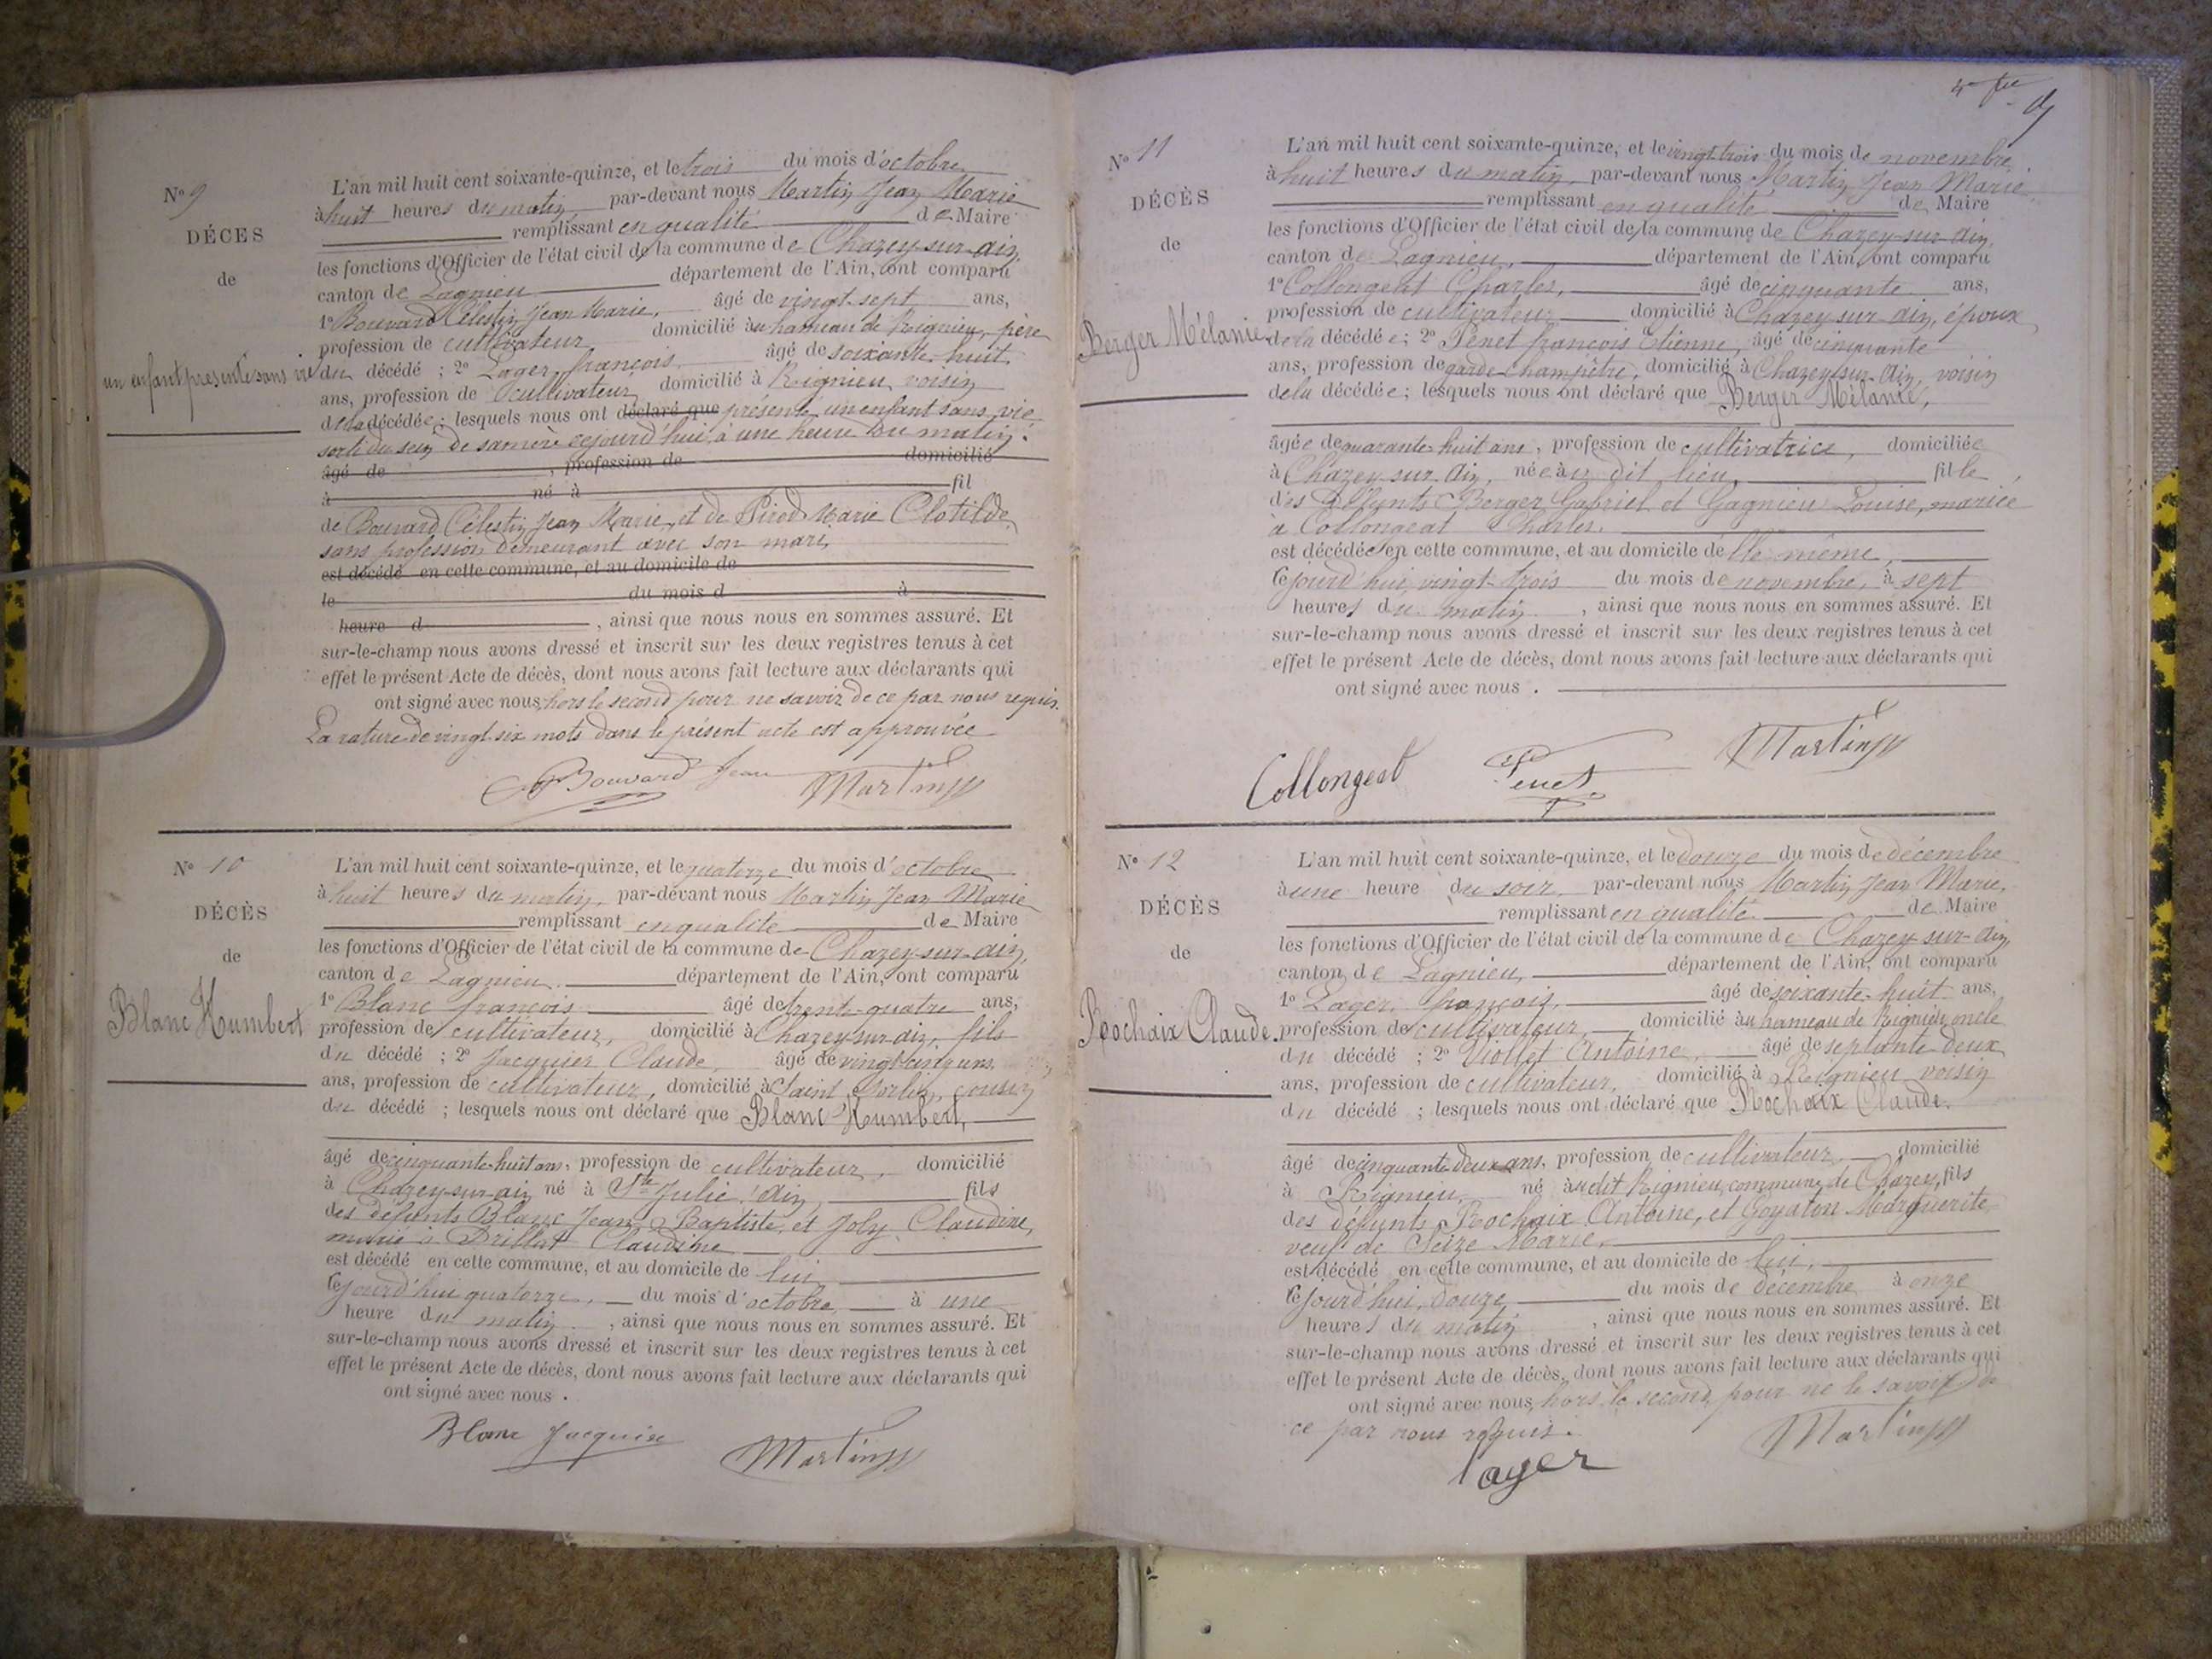 N° 9
DÉCES
de
un enfant présenté sans vie
L'an mil huit cent soixante-quinze, et le trois du mois d'octobre
à huit heures du matin par-devant nous Martin Jean Marie
remplissant en qualité de Maire
les fonctions d'Officier de l'état civil de la commune de Chazey-sur-ain,
canton de Lagnieu département de l'Ain, ont comparu
1° Bouvard Célestin Jean Marie, âgé de vingt-sept ans,
profession de cultivateur domicilié au hameau de Rignieu, père
du décédé ; 2° Lager françois âgé de soixante-huit
ans, profession de cultivateur domicilié à Rignieu voisin
de la décédée ; lesquels nous ont déclaré que présenté un enfant sans vie
sorti du sein de sa mère cejourd'hui à une heure du matin.
âgé de , profession de domicilié
à né à fil
de Bouvard Célestin Jean Marie, et de Pirod Marie Clotilde,
sans profession demeurant avec son mari,
est décédé en cette commune, et au domicile de
le du mois d à
heure d , ainsi que nous nous en sommes assuré. Et
sur-le-champ nous avons dressé et inscrit sur les deux registres tenus à cet
effet le présent Acte de décès, dont nous avons fait lecture aux déclarants qui
ont signé avec nous, hors le second pour ne savoir de ce par nous requis.
La rature de vingt six mots dans le présent acte est approuvée
Bouvard Jean Martin
N° 10
DÉCÈS
de
Blanc Humbert
L'an mil huit cent soixante-quinze, et le quatorze du mois d'octobre
à huit heures du matin, par-devant nous Martin Jean Marie
remplissant en qualité de Maire
les fonctions d'Officier de l'état civil de la commune de Chazey-sur-ain,
canton de Lagnieu département de l'Ain, ont comparu
1° Blanc françois âgé de trent-quatre ans,
profession de cultivateur, domicilié à Chazey-sur-ain, fils
du décédé ; 2° Jacquier Claude, âgé de vingt-cinq ans,
ans, profession de cultivateur, domicilié à Saint Sorlin, cousin
du décédé ; lesquels nous ont déclaré que Blanc Humbert,
âgé de cinquante-huit ans, profession de cultivateur, domicilié
à Chazey-sur-ain né à Ste Julie, Ain, fils
des défunts Blanc Jean Baptiste et Joly Claudine,
marié à Drillat Claudine
est décédé en cette commune, et au domicile de lui
cejourd'hui quatorze, du mois d'octobre, à une
heure du matin , ainsi que nous nous en sommes assuré. Et
sur-le-champ nous avons dressé et inscrit sur les deux registres tenus à cet
effet le présent Acte de décès, dont nous avons fait lecture aux déclarants qui
ont signé avec nous .
Blanc Jacquier Martin
N° 11
DÉCÈS
de
Berger Mélanie
L'an mil huit cent soixante-quinze, et le vingt trois du mois de novembre
à huit heures du matin, par-devant nous Martin Jean Marie
remplissant en qualité de Maire
les fonctions d'Officier de l'état civil de la commune de Chazey-sur-ain,
canton de Lagnieu, département de l'Ain, ont comparu
1° Collongeat Charles, âgé de cinquante ans,
profession de cultivateur domicilié à Chazey sur ain, époux
de la décédée ; 2° Penet françois Etienne, âgé de cinquante
ans, profession de garde-champêtre, domicilié à Chazey-sur-Ain, voisin
de la décédée ; lesquels nous ont déclaré que Berger Mélanie,
âgée de quarante-huit ans, profession de cultivatrice, domiciliée
à Chazey sur Ain, née au dit lieu, fille
des défunts Berger Gabriel et Gagnieu Louise, mariée
à Collongeat Charles.
est décédée en cette commune, et au domicile de Elle même,
cejourd'hui vingt-trois du mois de novembre, à sept
heures du matin , ainsi que nous nous en sommes assuré. Et
sur-le-champ nous avons dressé et inscrit sur les deux registres tenus à cet
effet le présent Acte de décès, dont nous avons fait lecture aux déclarants qui
ont signé avec nous .
Collongeat Penet Martin
N° 12
DÉCÈS
de
Rochaix Claude.
L'an mil huit cent soixante-quinze, et le douze du mois de décembre
à une heure du soir par-devant nous Martin Jean Marie,
remplissant en qualité de Maire
les fonctions d'Officier de l'état civil de la commune de Chazey-sur-Ain,
canton de Lagnieu, département de l'Ain, ont comparu
1° Lager françois, âgé de soixante-huit ans,
profession de cultivateur, domicilié au hameau de Rignieu oncle
du décédé ; 2° Viollet Antoine, âgé de septante-deux
ans, profession de cultivateur, domicilié à Rignieu voisin
du décédé ; lesquels nous ont déclaré que Rochaix Claude.
âgé de cinquante deux ans, profession de cultivateur domicilié
à Rignieu, né audit Rignieu, commune de Chazey, fils
des défunts Rochaix Antoine, et Goyaton Marguerite
veuf de Seize Marie,
est décédé en cette commune, et au domicile de lui,
cejourd'hui, douze, du mois de décembre à onze
heures du matin , ainsi que nous nous en sommes assuré. Et
sur-le-champ nous avons dressé et inscrit sur les deux registres tenus à cet
effet le présent Acte de décès, dont nous avons fait lecture aux déclarants qui
ont signé avec nous, hors le second pour ne le savoir de
ce par nous requis.
Lager Martin